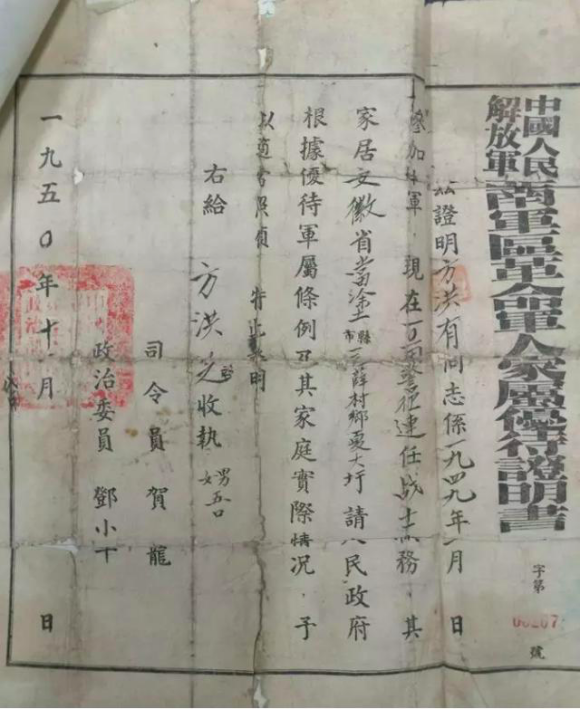 中國人民
解放軍
西南軍區革命軍人家屬優待證明書
字第
號
茲證明方洪有同志係一九四九年一月 日
參加我軍，現在 警衛連任战士 務，其
家居安徽省當塗縣市三薛村鄉夏大圩請人民政府
根據優待軍屬條例及其家庭實際情況，予
以適當照顧 特此 明
右給
方洪 收執
司令員賀龍
政治委員 鄧小平
一九五〇年十一月 日